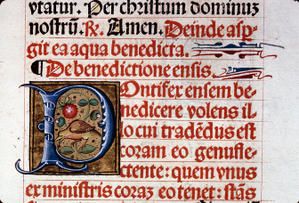 vtatur. Per christum dominuz
nostrū. ℟. Amen. Deinde asp
git ea aqua benedicta.
¶ De benedictione ensis.
Pontifex ensem be
nedicere volens il
lo cui tradēdus est
coram eo genufle
ctente: quem vnus
ex ministris coraz eo tenet: stās